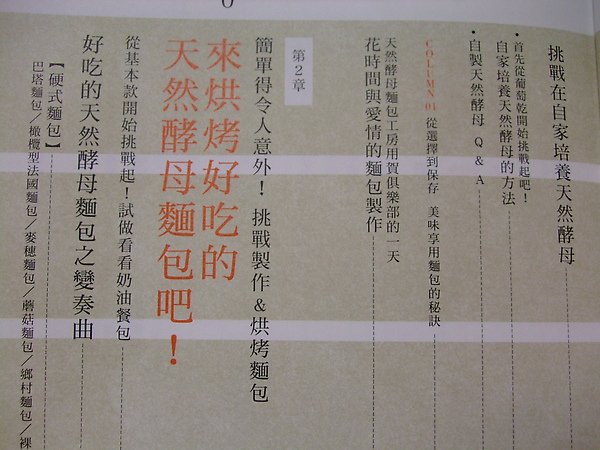 挑戰在自家培養天然酵母
•首先從葡萄乾開始挑戰起吧！
自家培養天然酵母的方法
•自製天然酵母 Q & A
COLUMN 01 從選擇到保存 美味享用麵包的秘訣
天然酵母麵包工房用賀俱樂部的一天
花時間與愛情的麵包製作
第2章
簡單得令人意外！挑戰製作&烘烤麵包
來烘烤好吃的
天然酵母麵包吧！
從基本款開始挑戰起！試做看看奶油餐包
好吃的天然酵母麵包之變奏曲
【硬式麵包】
巴塔麵包／橄欖型法國麵包／麥穗麵包／蘑菇麵包／鄉村麵包／裸